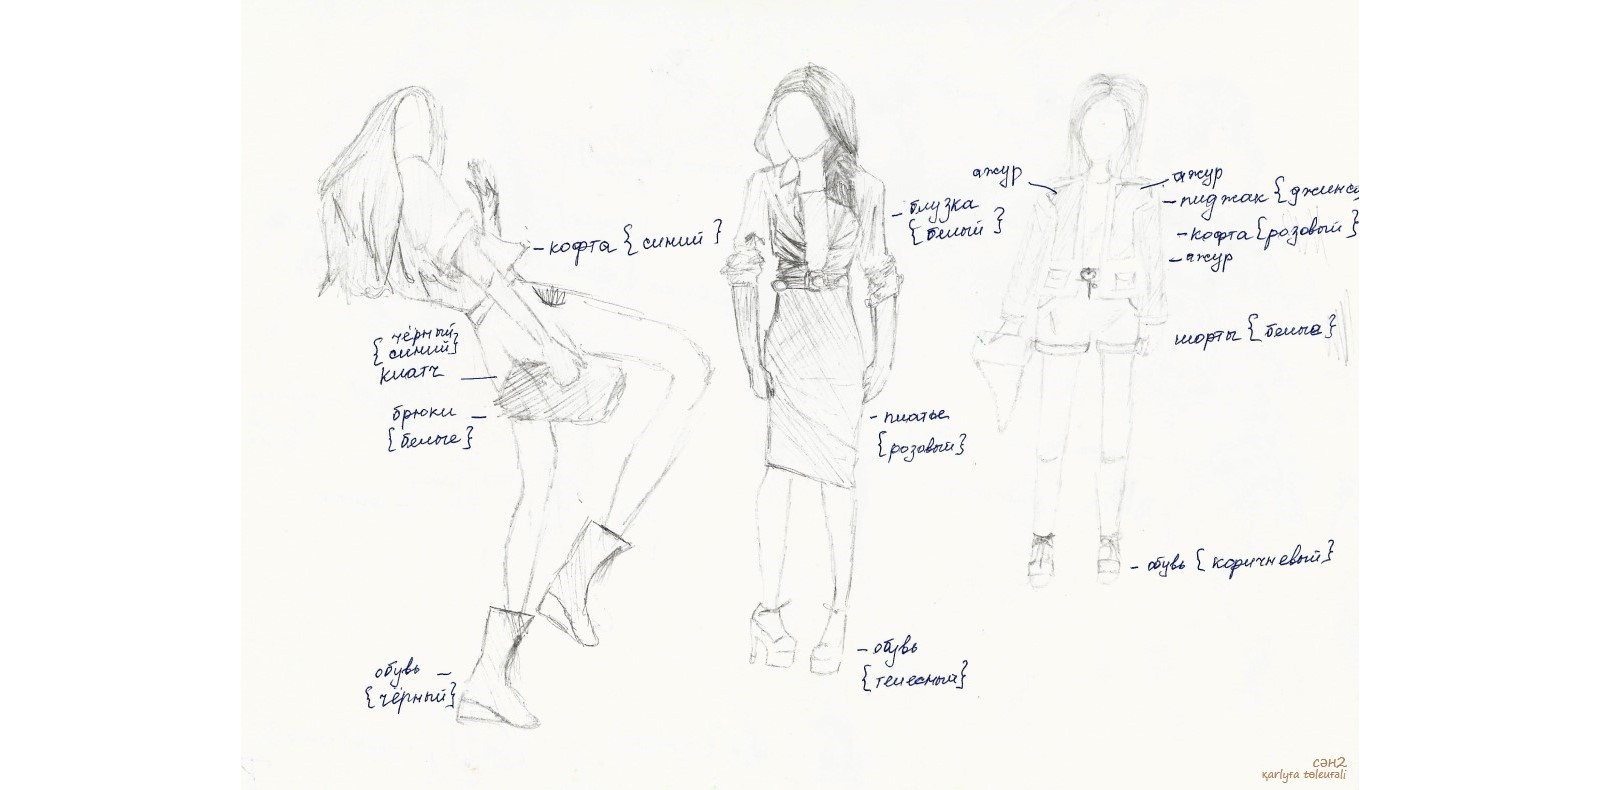 - кофта { синий }
чёрный
{ синий }
клатч
брюки
{ белые }
обувь
{ чёрный }
- блузка
{ белый }
- платье
{ розовый }
- обувь
{ телесный }
ажур
ажур
- пиджак { джинсы
- кофта { розовый }
- ажур
шорты { белые }
- обувь { коричневый }
сән2
қarlyґa toleuґali